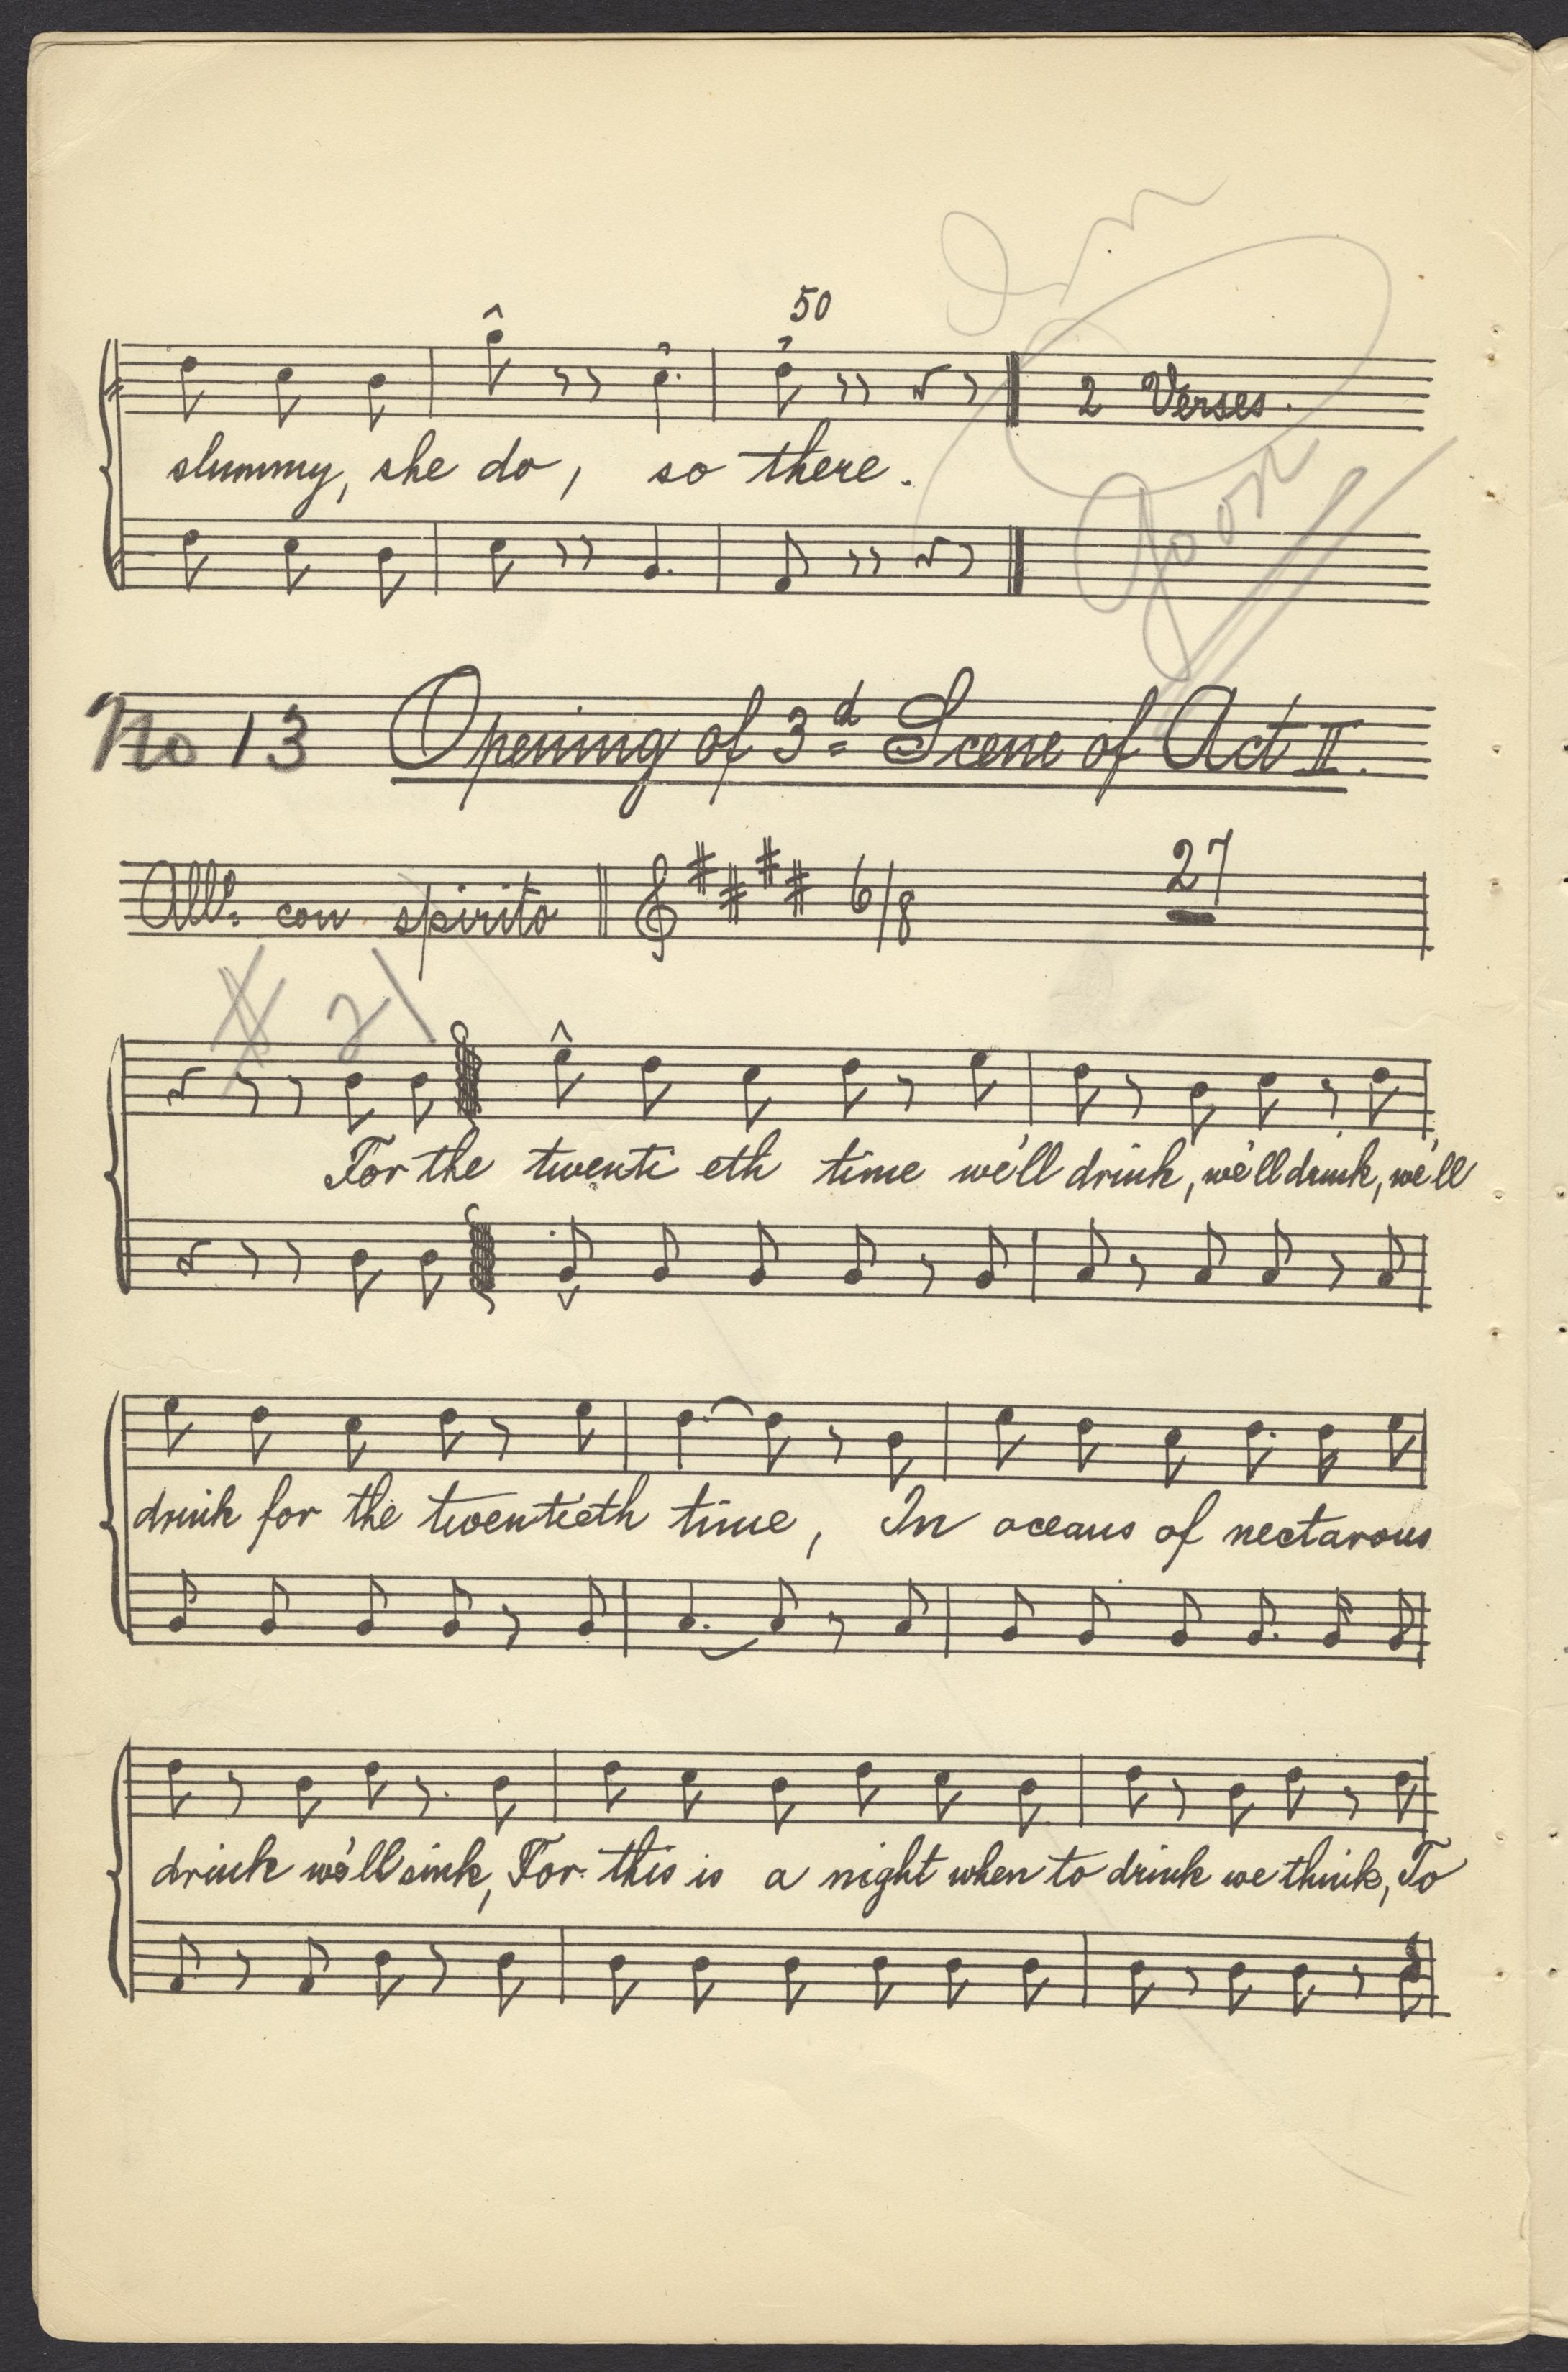 50
2 Verses.
slummy, she do, so there.
No 13 Opening of 3d Scene of Act II.
Allo con spirito 6/8 27
# 21
For the twenti eth time we'll drink, we'll drink, we'll
drink for the twentieth time, In oceans of nectarous
drink we'll sink, For this is a night when to drink we think, To